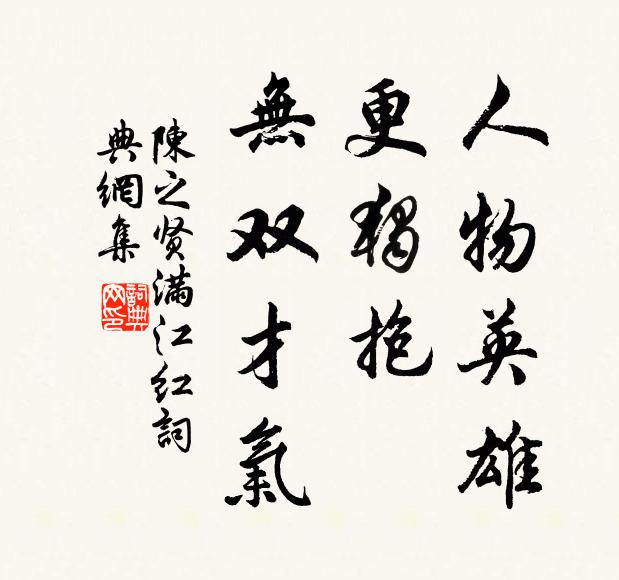 人物英雄
更獨抱
無双才氣
陳之贤满江红詞
典網集
詞典網印